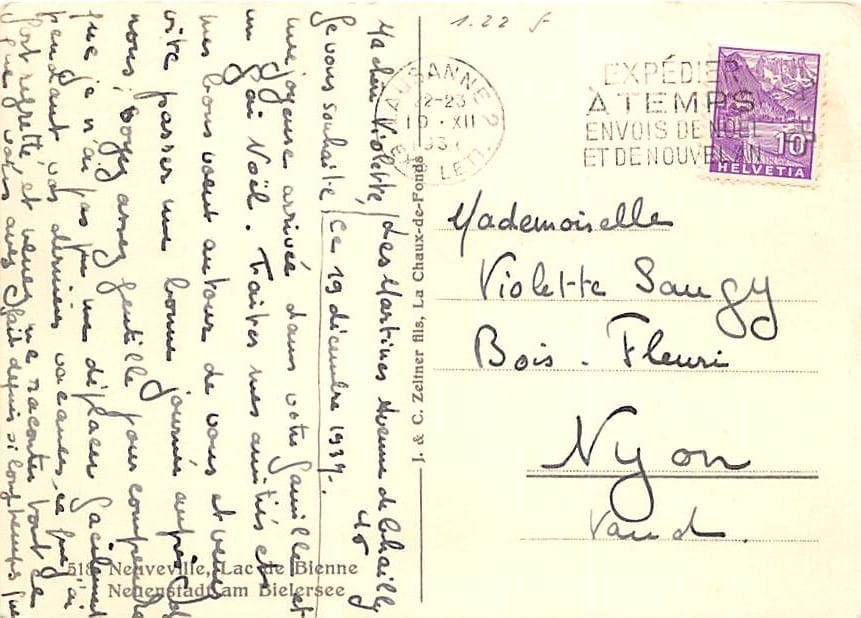 1.22 f
LAUSANNE 2
22-23
19 · XII
EXP. LET.
EXPÉDIER
À TEMPS
ENVOIS DE NOËL
ET DE NOUVEL AN
10
HELVETIA
Mademoiselle
Violette Saugy
Bois-Fleuri
Nyon
Vaud.
J. & C. Zeltner fils, La Chaux-de-Fonds
Ma chère Violette, Les Martines Avenue de Chailly
45
Je vous souhaite, Ce 19 décembre 1934.
une joyeuse arrivée dans votre famille et
un gai Noël. Traites mes amitiés et
mes bons voeux autour de vous et venez
vite passer une bonne journée auprès de
nous; soyez assez gentille pour comprendre
que je n'ai pas pu me déplacer facilement
pendant vos dernières vacances, ce que j'ai
fort regretté et venez me raconter tout ce
que vous avez fait depuis si longtemps que
518 Neuveville, Lac de Bienne
Neuenstadt am Bielersee